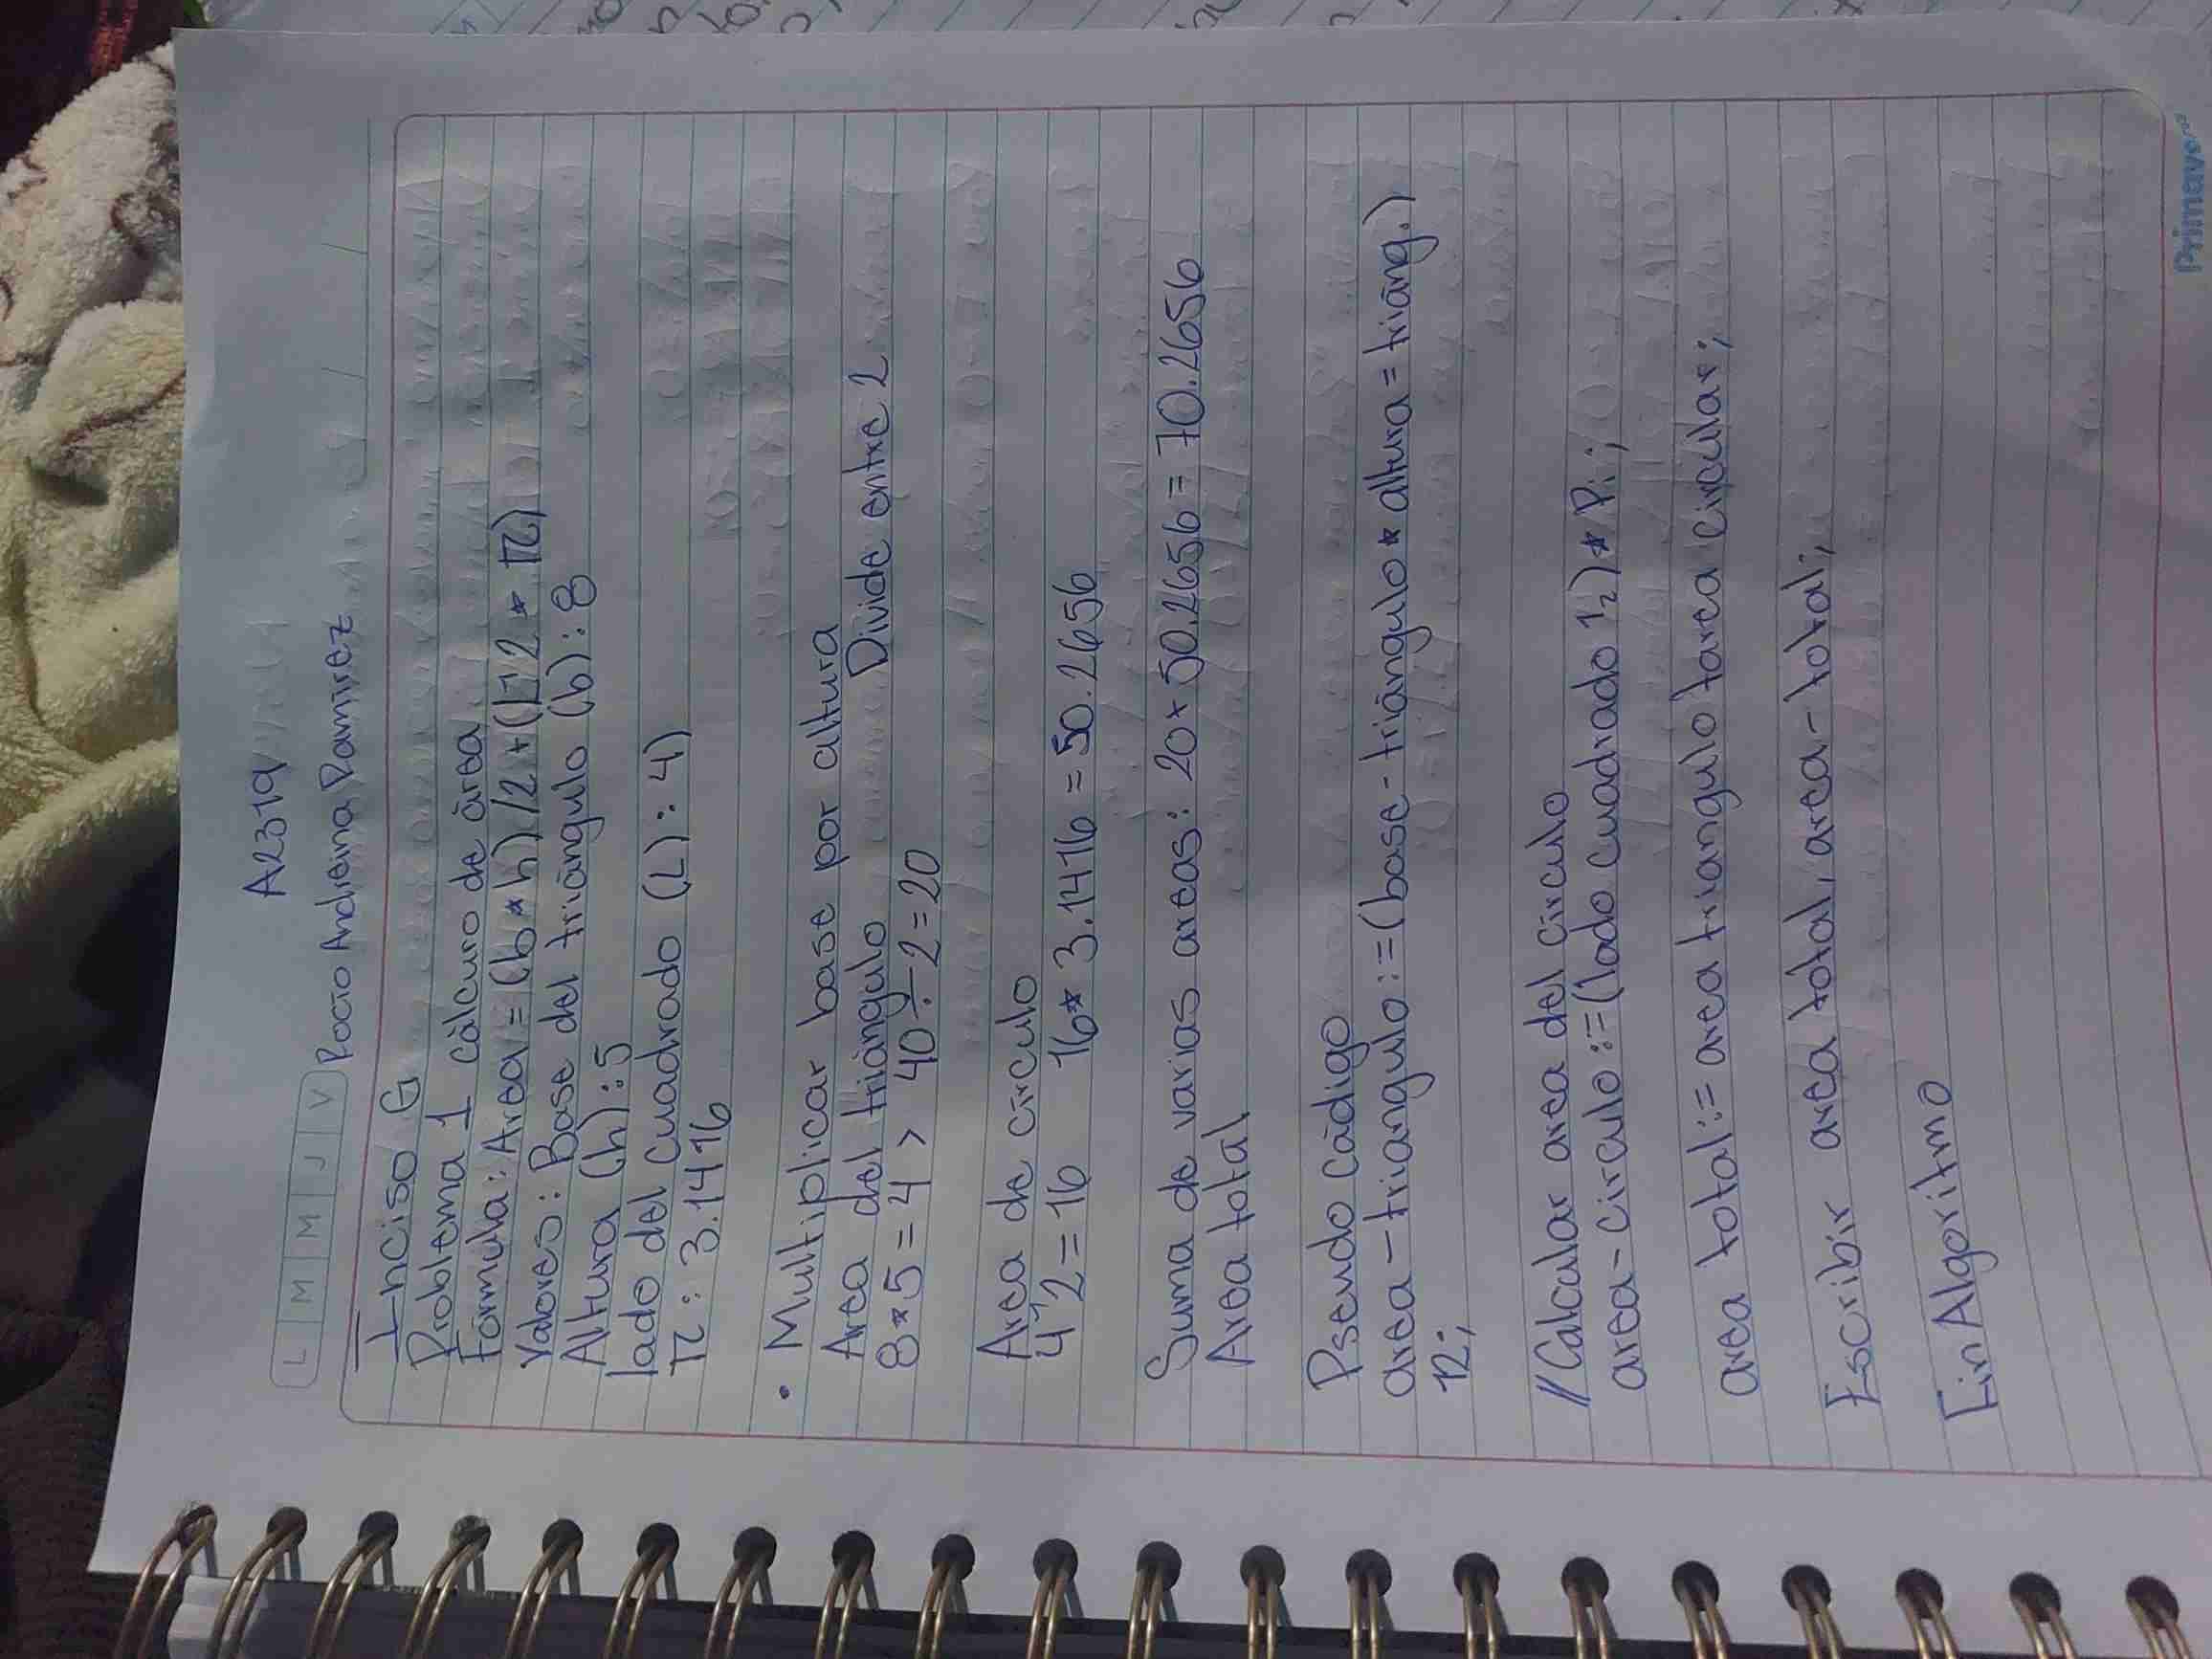 A2319
L M M J V Rocio Andreina Ramirez
Inciso G
Problema 1 cálcuro de área
Fórmula: Area = (b * h) /2 + (L^2 * π)
Valores: Base del triángulo (b): 8
Altura (h): 5
lado del cuadrado (L): 4)
π: 3.1416
• Multiplicar base por altura
Area del triángulo Divide entre 2
8*5=4> 40÷2=20
Area de circulo
4^2=16 16*3.1416=50.2656
Suma de varias areas: 20+50.2656=70.2656
Area total
Pseudo código
area-triangulo:=(base-triángulo*altura=triáng.)
12;
//Calcular area del circulo
area-circulo:=(lado cuadrado 12)*Pi;
area total:= area triangulo tarea circular;
Escribir area total, area-total;
FinAlgoritmo
Primavera